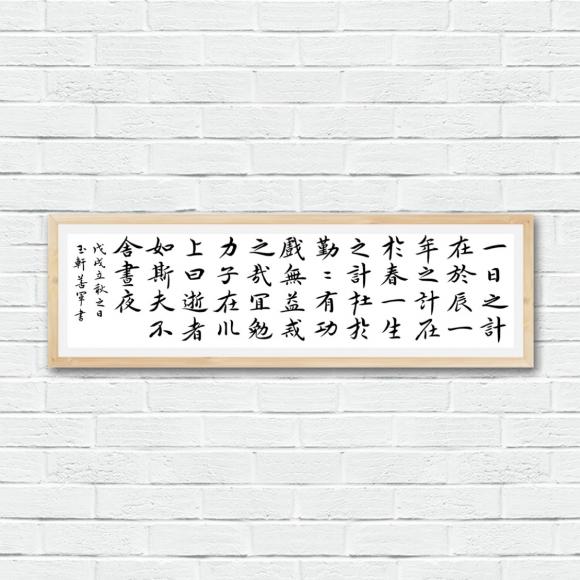 一日之計
在於辰一
年之計在
扵春一生
之計在扵
勤〻有功
戲無益戒
之哉宜勉
力子在川
上曰逝者
如斯夫不
舍晝夜
戊戌立秋之日
玉軒善書